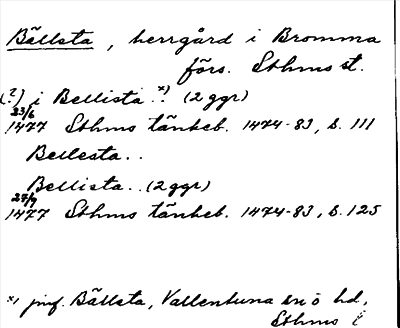 Bällsta, herrgård i Bromma
förs. Sthms st.
(?) i Bellista..ˣ⁾ (2 ggr)
23/6
1477 Sthms tänkeb. 1474-83, s. 111
Bellesta..
Bellista.. (2 ggr)
27/9
1477 Sthms tänkeb. 1474-83, s. 125
ˣ⁾ jmf. Bällsta, Vallentuna sn o hd,
Sthms l